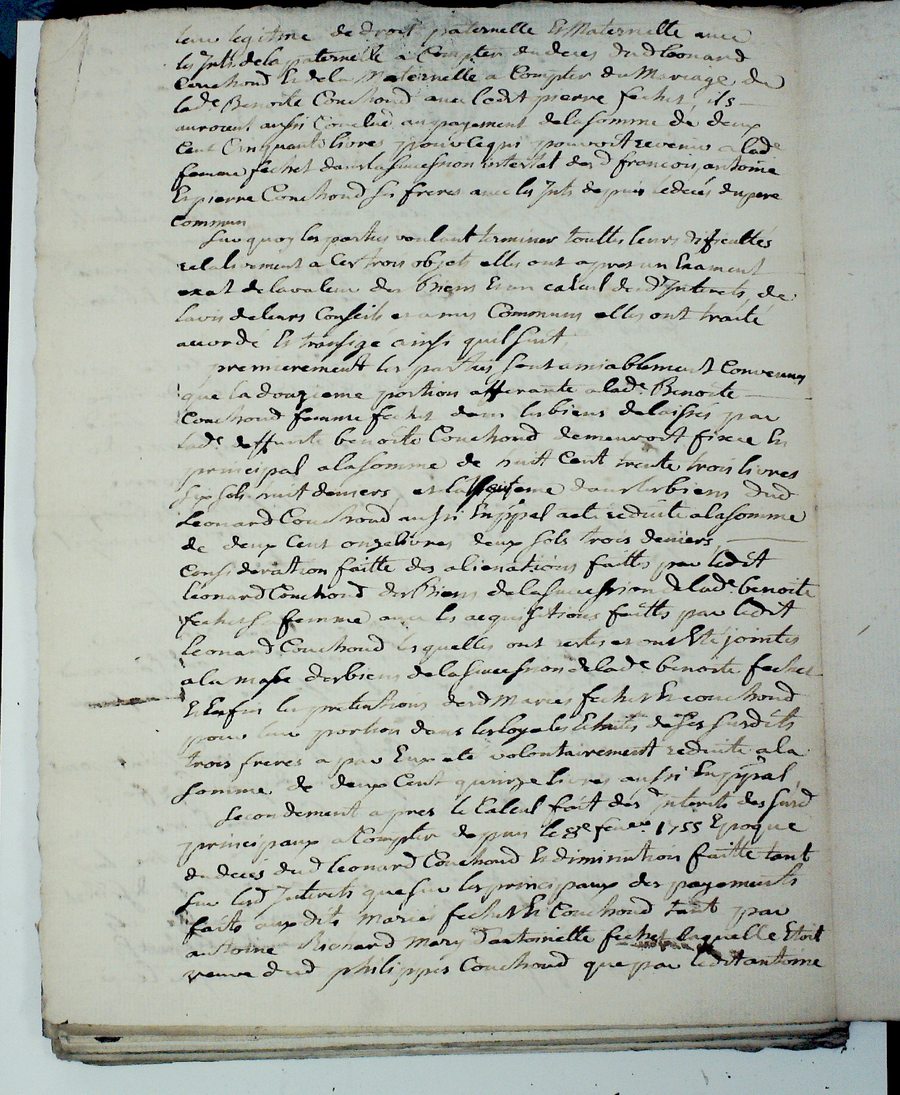 leur legitime de droit paternelle et Maternelle avec
les Jnts de la paternelle a Compter du deces dud leonard
Couchoud et de la Maternelle a Compter du Mariage de
lade Benoite Couchoud avec ledit pierre fechet, ils
auroient aussi Conclud au payement de la somme de deux
Cent Cinquante livres pour ce qui pourroit revenir a lade
femme fechet dans la succession intestat desd francois, antoine
Et pierre Couchoud ses freres avec les Jnts depuis le deces du pere
Commun
Sur quoy les parties voulant terminer touttes leurs difficultés
relativement a Ces trois objets elles ont apres un Exament
exat de la valeur des Biens et un calcul desd Interets, de
lavis de leurs Conseils et amis Communs elles ont traité
accordé Et transigé ainsi quil suit,
premierement les parties sont amiablement Convenues
que la douzieme portion afferante a lade Benoite
Couchoud femme fechet dans les biens delaissés par
lade deffunte benoite Couchoud demeuroit fixée En
principal a la somme de huit Cent trente trois livres
six sols huit deniers et la dans les biens dud
Leonard Couchoud aussi En ppal a eté reduite a la somme
de deux Cent onze livres deux sols trois deniers,
Consideration faitte des alienations faittes par ledit
leonard Couchoud des Biens de la succession de lade benoite
fechet sa femme avec les acquisitions faittes par ledit
Leonard Couchoud lesquelles ont restes et ont Eté jointes
a la masse des biens de la succession de lade benoite fechet
Et Enfin les pretentions desd Mariés fechet Et couchoud
pour leur portion dans les de Ses susdits
trois freres a par Eux eté volontairement reduite a la
somme de deux Cent quinze livres aussi En ppal,
Secondement apres le Calcul fait des Interets des susd
principaux a Compter depuis le 8e fevr 1755 Epoque
du deces dud leonard Couchoud Et diminution faitte tant
sur lesd Interets que sur les principaux des payements
faits auxdits Mariés fechet Et Couchoud tant par
antoine Richard Mary dantoinette fechet laquelle Etoit
veuve dud philippes Couchoud que par ledit antoine